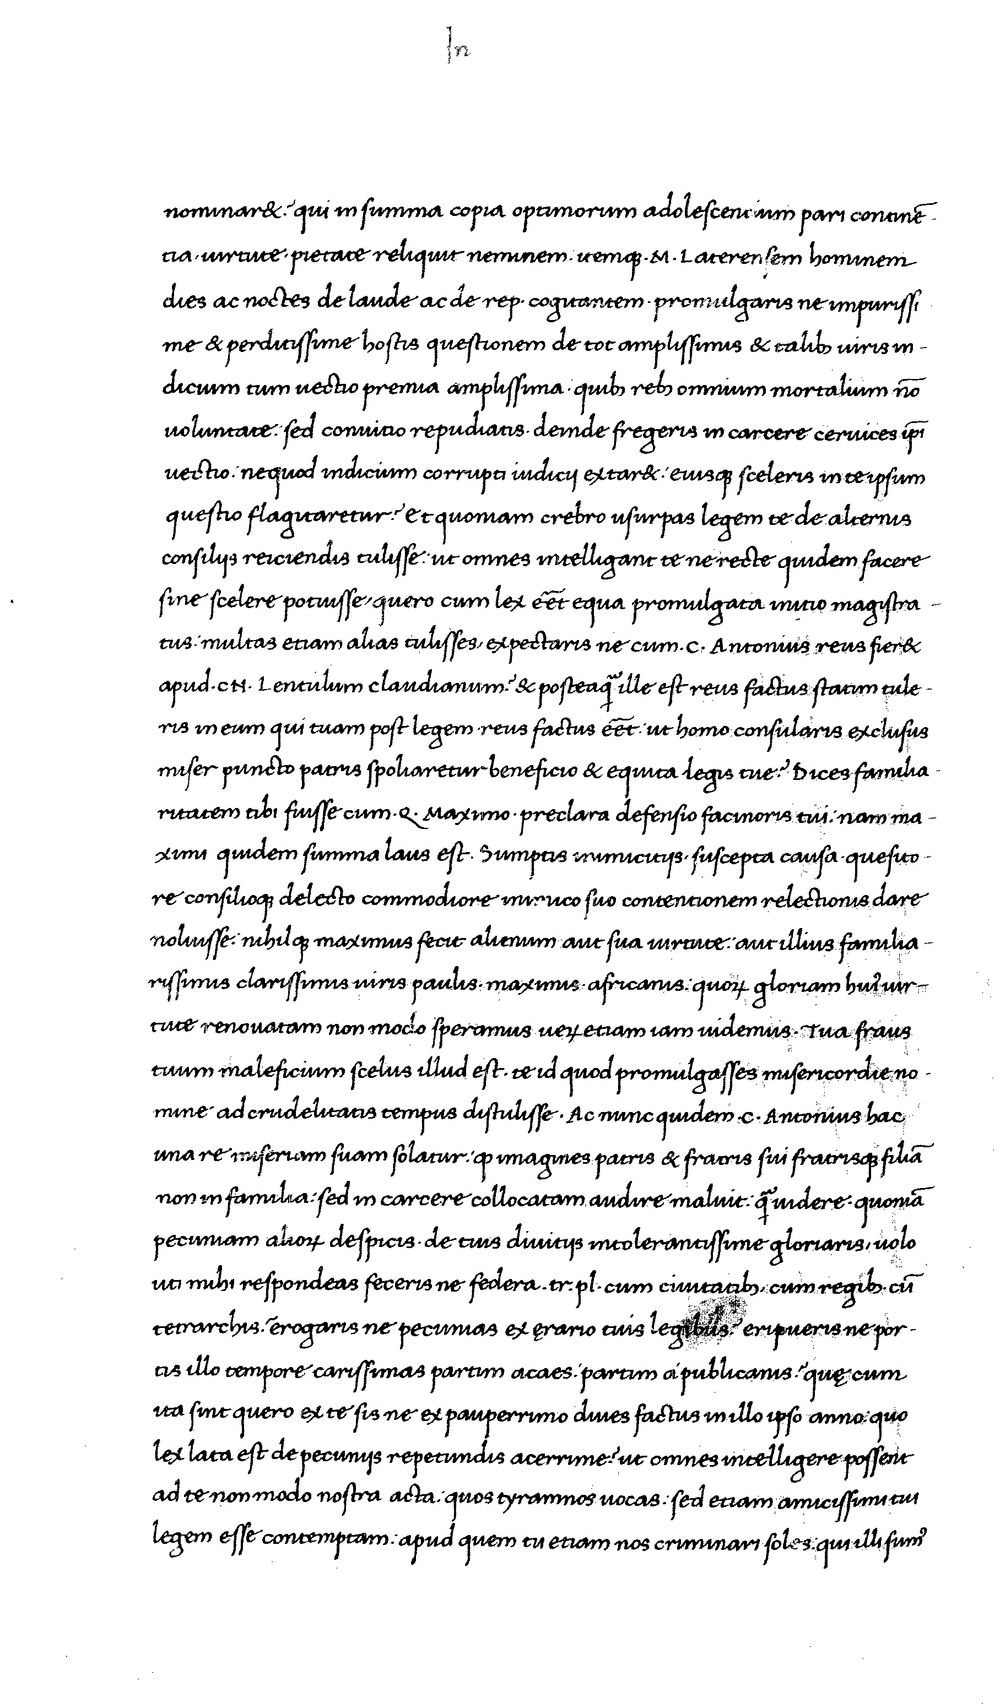 In
nominar&? qui in summa copia optimorum adolescentium pari continē-
tia. uirtute. pietate reliquit neminem. itemq; .M. Laterensem hominem
dies ac noctes de laude ac de rep. cogitantem. promulgaris ne impurissi
me & perditissime hostis questionem de tot amplissimis & talib; uiris in-
dicium tum uectio premia amplissima. quib; reb; omnium mortalium nō
uoluntate: sed conuitio repudiatis. deinde fregeris in carcere ceruices ip̄i
uectio: nequod indicium corrupti iudicij extar&: eiusq; sceleris in te ipsum
questio flagitaretur? Et quoniam crebro usurpas legem te de alternis
consilijs reiciendis tulisse: ut omnes intelligant te ne recte quidem facere
sine scelere potuisse, quero cum lex eēt equa promulgata initio magistra-
tus: multas etiam alias tulisses, expectaris ne cum .C. Antonius reus fier&
apud .CN. Lentulum claudianum? & posteaq̄ ille est reus factus statim tule-
ris in eum qui tuam post legem reus factus eēt: ut homo consularis exclusus
miser puncto patris spoliaretur beneficio & equita legis tue? Dices familia-
ritatem tibi fuisse cum .Q. Maximo. preclara defensio facinoris tui: nam ma-
ximi quidem summa laus est. Sumptis inimicitijs, suscepta causa. quesito-
re consilioq; delecto commodiore inimico suo contentionem relectionis dare
noluisse: nihilq; maximus fecit alienum aut sua uirtute: aut illius familia-
rissimis clarissimis uiris paulis. maximis. africanis: quoꝝ gloriam huiꝰ uir-
tute renouatam non modo speramus ueꝝ etiam iam uidemus. Tua fraus
tuum maleficium scelus illud est. te id quod promulgasses misericordie no-
mine ad crudelitatis tempus distulisse. Ac nunc quidem .C. Antonius hac
una re miseriam suam solatur: ꝙ imagines patris & fratris sui fratrisq; filiā
non in familia: sed in carcere collocatam audire maluit: q̄ uidere. quoniā
pecuniam alioꝝ despicis. de tuis diuitijs intolerantissime gloriaris, uolo
uti mihi respondeas feceris ne federa .tr. pl. cum ciuitatib; cum regib; cū
tetrarchis? erogaris ne pecunias ex ęrario tuis legibus? eripueris ne par-
tis illo tempore carissimas partim a caes: partim a publicanis? quę cum
ita sint quero ex te sis ne ex pauperrimo diues factus in illo ipso anno: quo
lex lata est de pecunijs repetundis acerrime? ut omnes intelligere possent
ad te non modo nostra acta: quos tyramnos uocas: sed etiam amicissimi tui
legem esse contemptam: apud quem tu etiam nos criminari soles: qui illi sumꝰ